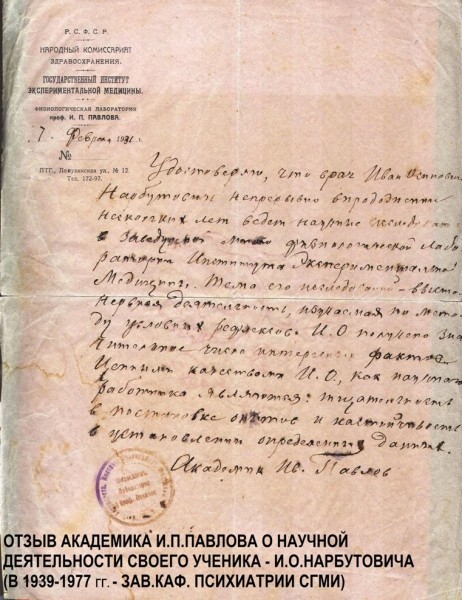 Р. С. Ф. С. Р.
НАРОДНЫЙ КОМИССАРИАТ
ЗДРАВООХРАНЕНИЯ.
ГОСУДАРСТВЕННЫЙ ИНСТИТУТ
ЭКСПЕРИМЕНТАЛЬНОЙ МЕДИЦИНЫ.
ФИЗИОЛОГИЧЕСКАЯ ЛАБОРАТОРИЯ
проф. И. П. ПАВЛОВА.
7 Февраля 1921 г.
№
ПТГ., Лопухинская ул., № 12.
Тел. 172-97.
Удостоверяю, что врач Иван Осипович
Нарбутович непрерывно в продолжении
нескольких лет ведет научные исследован.
в заведуемой мною физиологической Лабо
ратории Института Экспериментальной
Медицины. Тема его исследований - высшая
нервная деятельность, изучаемая по мето-
ду условных рефлексов. И.О получено зна
чительное число интересных фактов.
Ценными качествами И.О., как научного
работника являются: тщательность
в постановке опытов и настойчивость
в установлении определенных данных.
Академик Ив. Павлов
ОТЗЫВ АКАДЕМИКА И.П.ПАВЛОВА О НАУЧНОЙ
ДЕЯТЕЛЬНОСТИ СВОЕГО УЧЕНИКА - И.О.НАРБУТОВИЧА
(В 1939-1977 гг. - ЗАВ.КАФ. ПСИХИАТРИИ СГМИ)